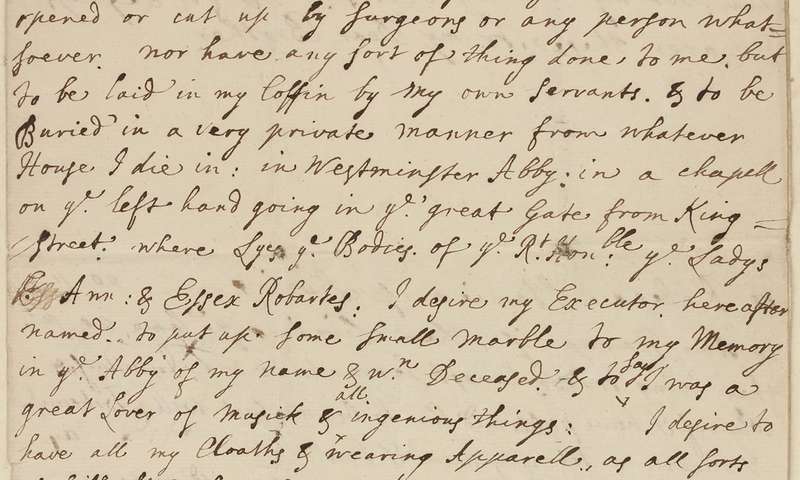 opened or cut up by surgeons or any person what=
soever. nor have any sort of thing done to me. but
to be laid in my Coffin by my own servants. & to be
Buried in a very private manner from whatever
House I die in: in Westminster Abby: in a chapell
on ye. left hand going in ye. great Gate from King=
=street. where Lyes ye. Bodies. of ye. Rt. Honble: ye. Ladys
Ann: & Essex Robartes: I desire my Executor. hereafter
named. to put up some small marble to my Memory
in ye. Abby of my name & wn. Deceased. & to say I was a
great Lover of musick & all ingenious things: I desire to
have all my Cloaths & wearing Apparell., as all sorts